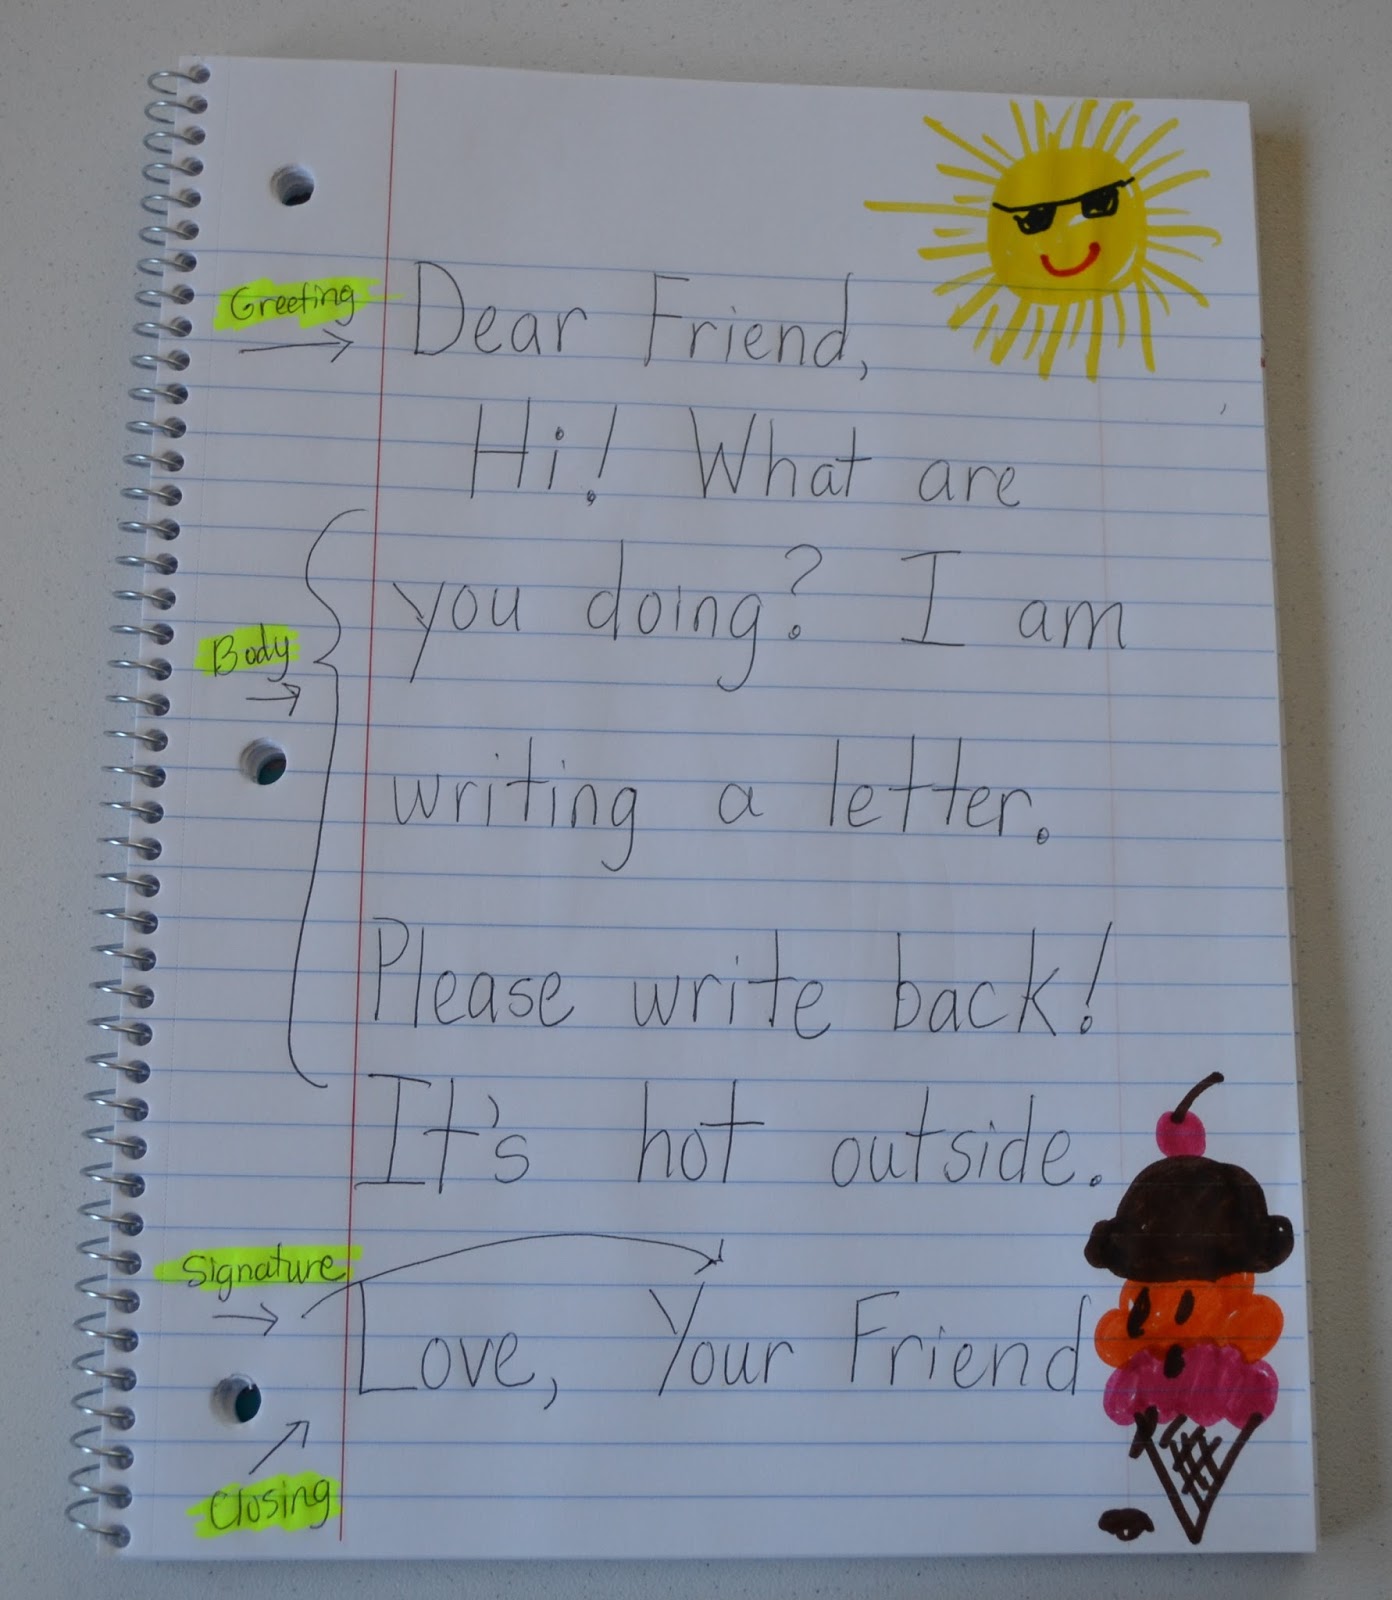 Greeting
Dear Friend,
Hi! What are
you doing? I am
Body
writing a letter.
Please write back!
It's hot outside.
Signature
Love, Your Friend
Closing